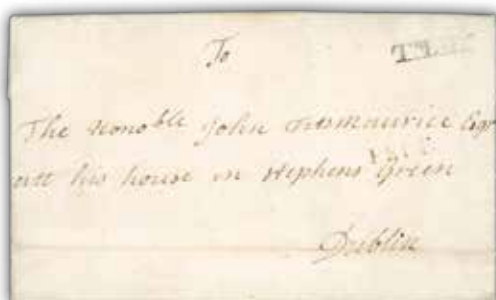 To
The Honoble John Fitsmaurice Esqr
att his house in Stephens Green
Dublin